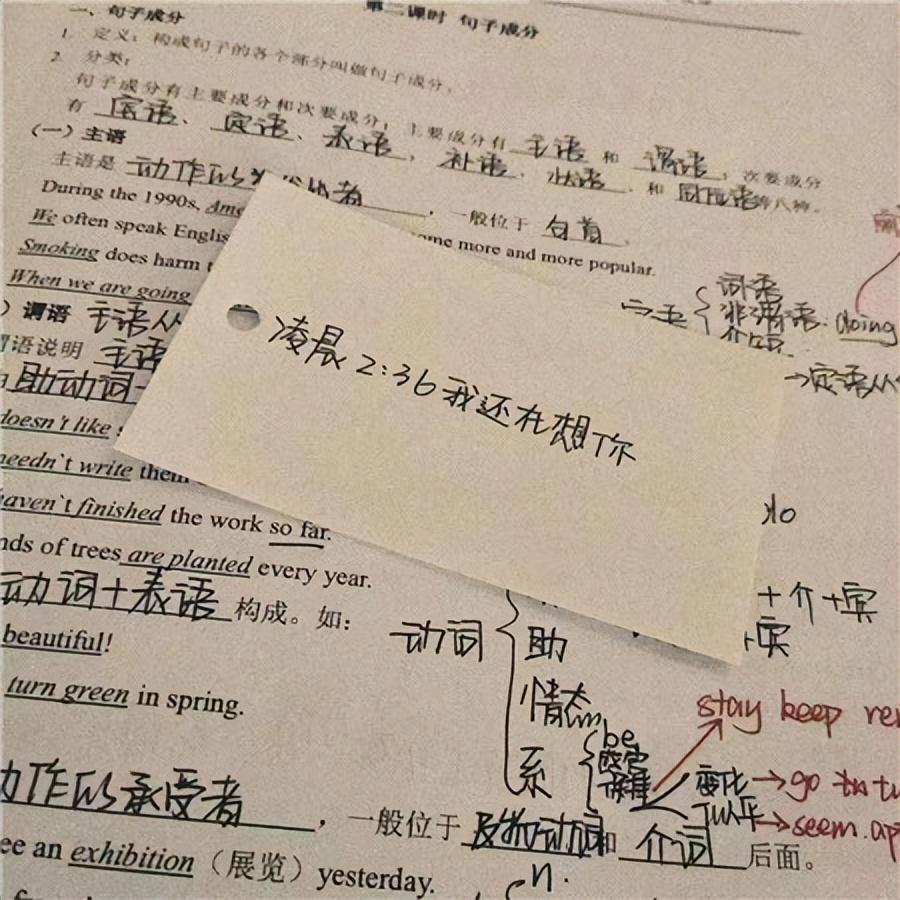 第二课时 句子成分
一、句子成分
1. 定义：构成句子的各个部分叫做句子成分。
2. 分类：
句子成分有主要成分和次要成分；主要成分有 主语 和 谓语；次要成分
有 宾语、定语、表语、补语、状语、和 同位语等八种。
（一）主语
主语是 动作的 者，一般位于 句首
During the 1990s,
We often speak Englis
ome more and more popular.
Smoking does harm t
When we are going
词语
非谓语. doing
谓语 主语从
→定语从
语说明 主语
助动词
doesn't like
needn`t write them
haven`t finished the work so far.
nds of trees are planted every year.
凌晨2:36我还在想你
do
动词+表语 构成。如：
+介+宾
+宾
beautiful!
动词
助
情态
系
be
感官
turn green in spring.
stay keep
变化→go
→seem.
动作的承受者，一般位于 及物动词和 介词 后面。
ee an exhibition（展览）yesterday.
n.